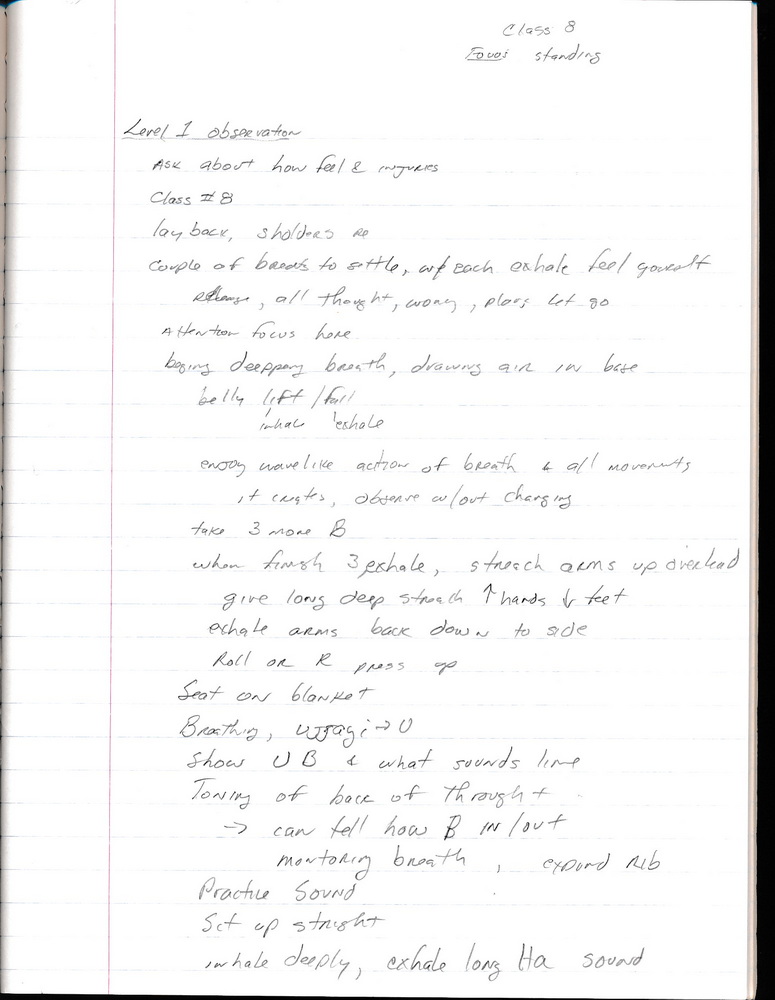 Class 8
Focus standing
Level 1 observation
Ask about how feel & injuries
Class #8
lay back, sholders re
Couple of breats to settle, w/ each exhale feel yourself
, all thought, worry, plans let go
Attention focus here
beging deeppany breath, drawing air in base
belly lift /fall
inhale exhale
enjoy wavelike action of breath & all movements
it creates, observe w/out changing
take 3 more B
when finish 3 exhale, streach arms up overhead
give long deep streach ↑ hands ↓ feet
exhale arms back down to side
Roll on R press up
Seat on blanket
Breathing, ujjayi → U
Show U B & what sounds like
Toning of back of throught
→ can tell how B in/out
montoring breath, expand rib
Practice Sound
Set up stright
inhale deeply, exhale long Ha sound